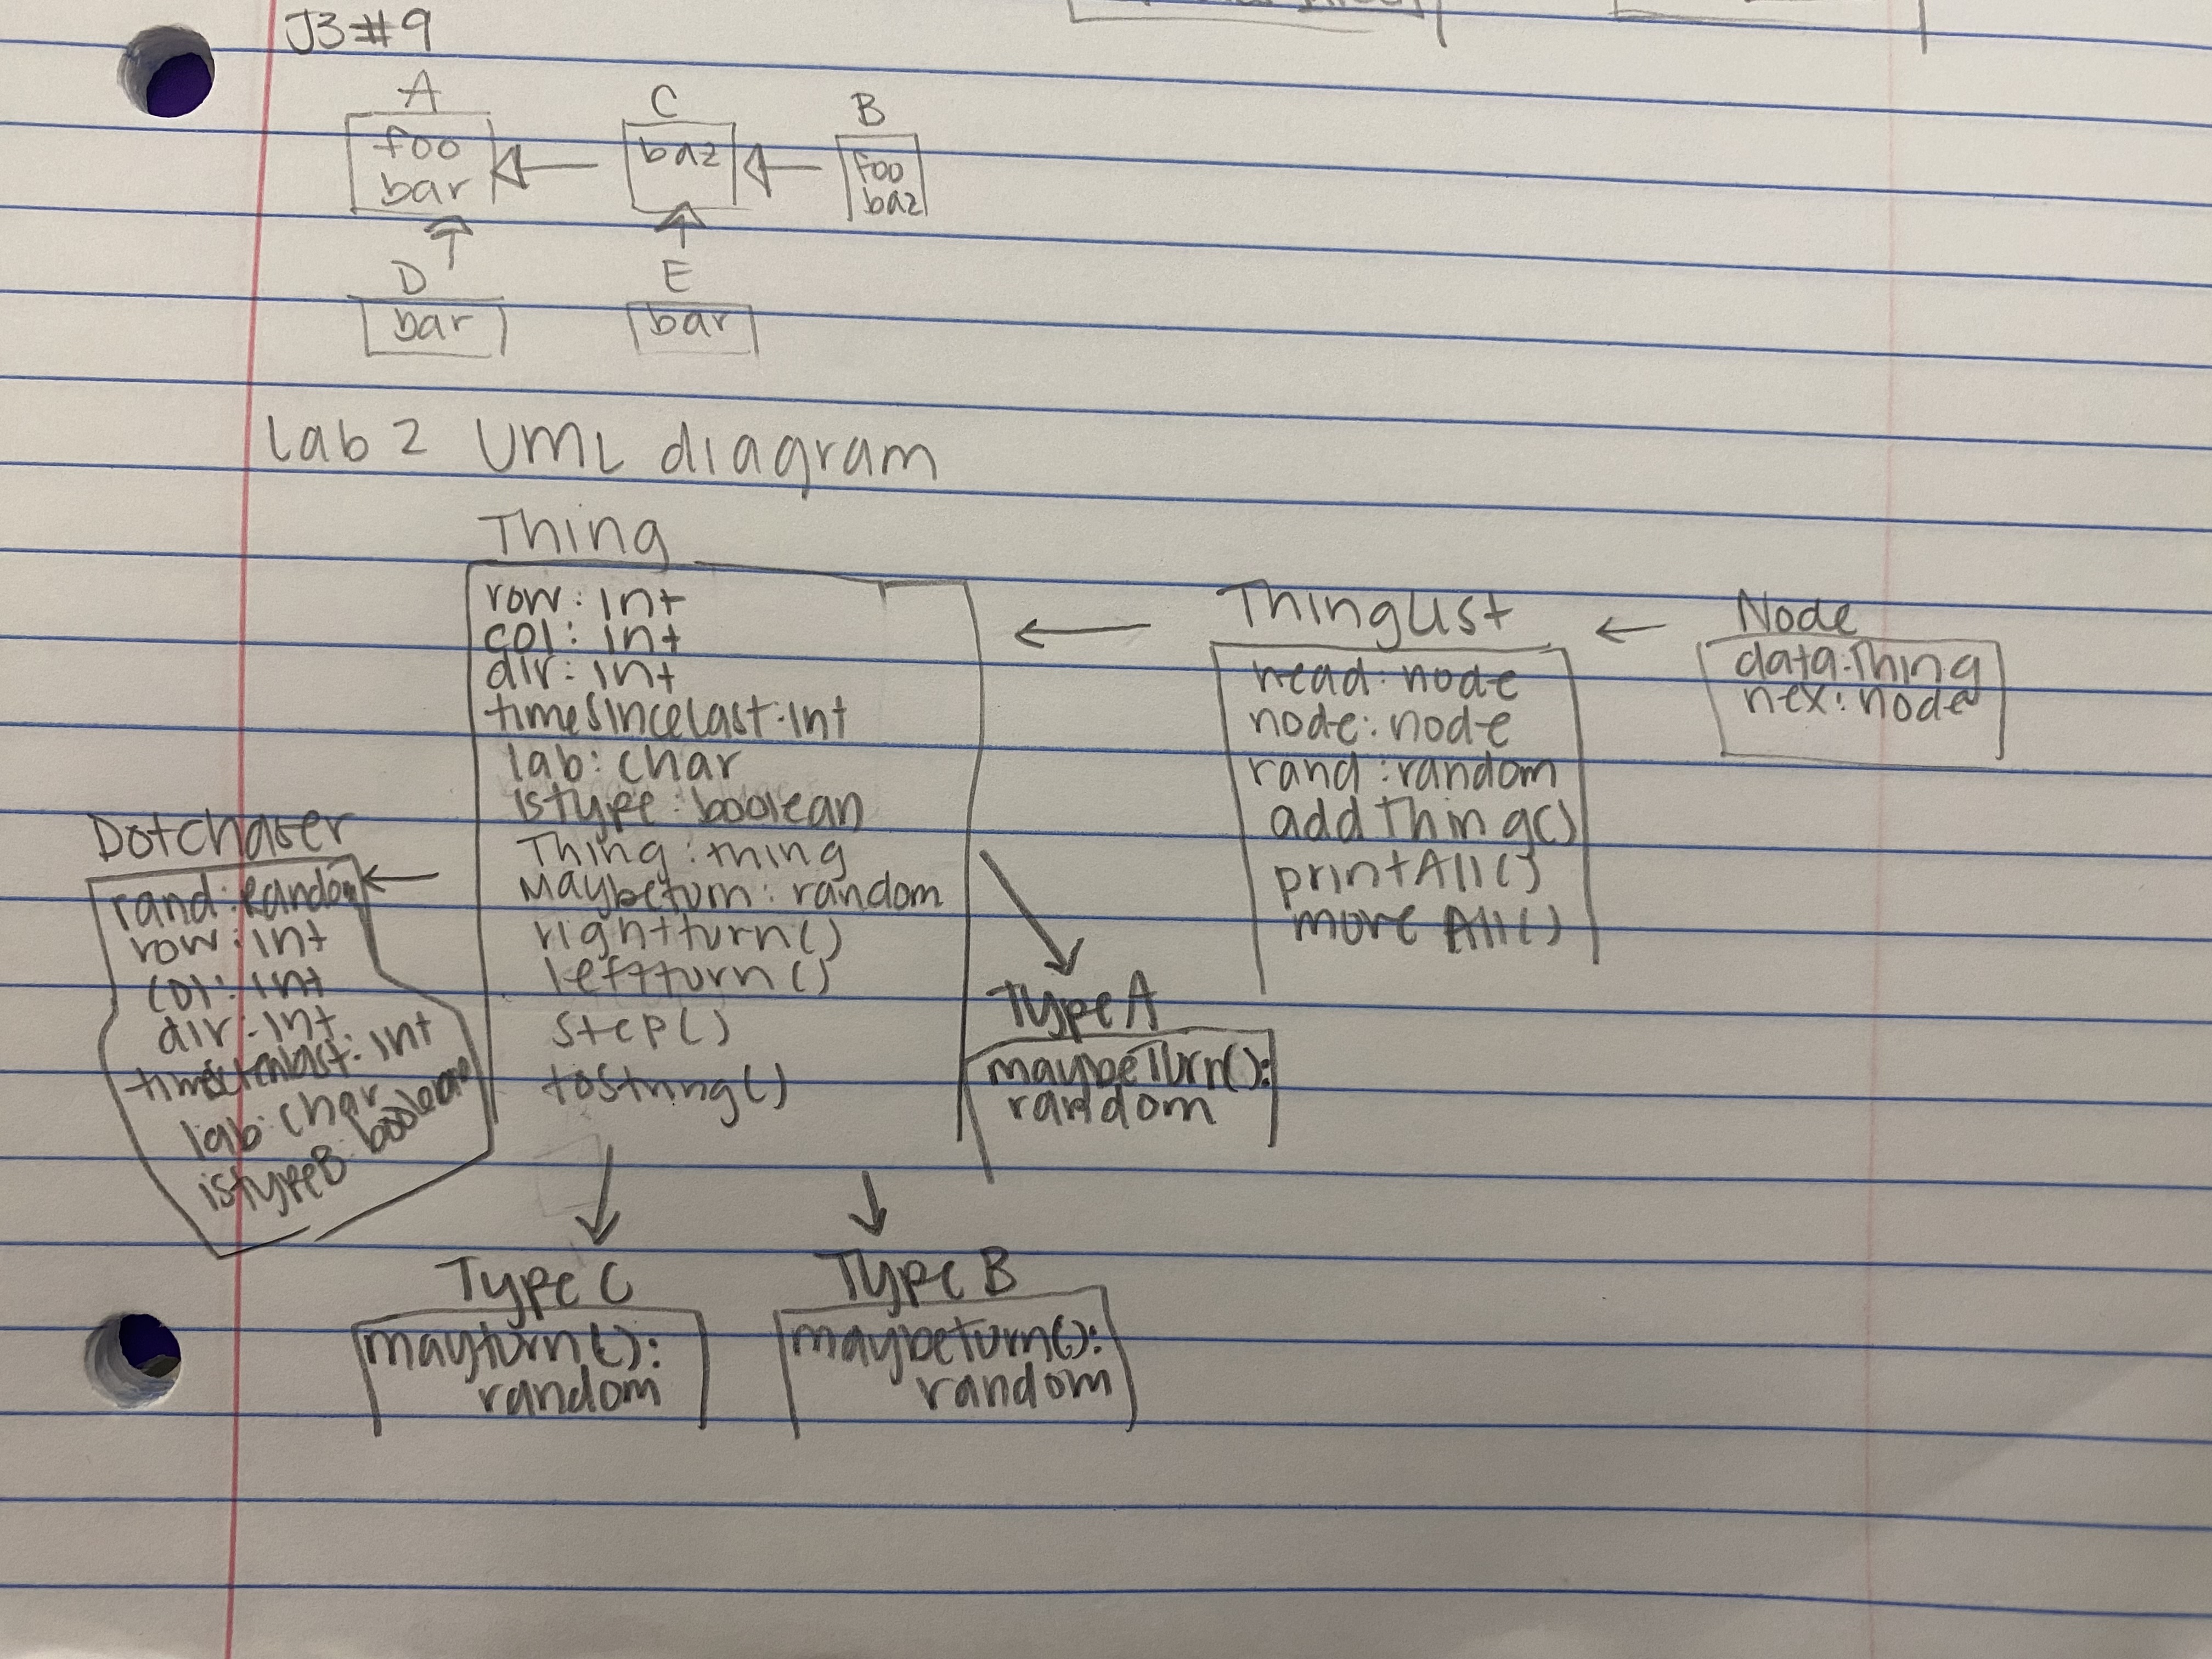 J3#9
A
foo
bar
C
baz
B
foo
baz
D
bar
E
bar
Lab 2 UML diagram
Thing
row: int
col: int
dir: int
timeSinceLast: int
lab: char
istype: boolean
Thing: thing
Maybeturn: random
rightturn()
leftturn()
step()
toString()
ThingList
head: node
node: node
rand: random
addThing()
printAll()
more All()
Node
data: Thing
nex: node
Dotchaser
rand: Random
row: int
col: int
dir: int
int
lab: char
istypeB: boolean
Type A
maybeTurn():
random
Type C
mayturn():
random
Type B
maybeturn():
random